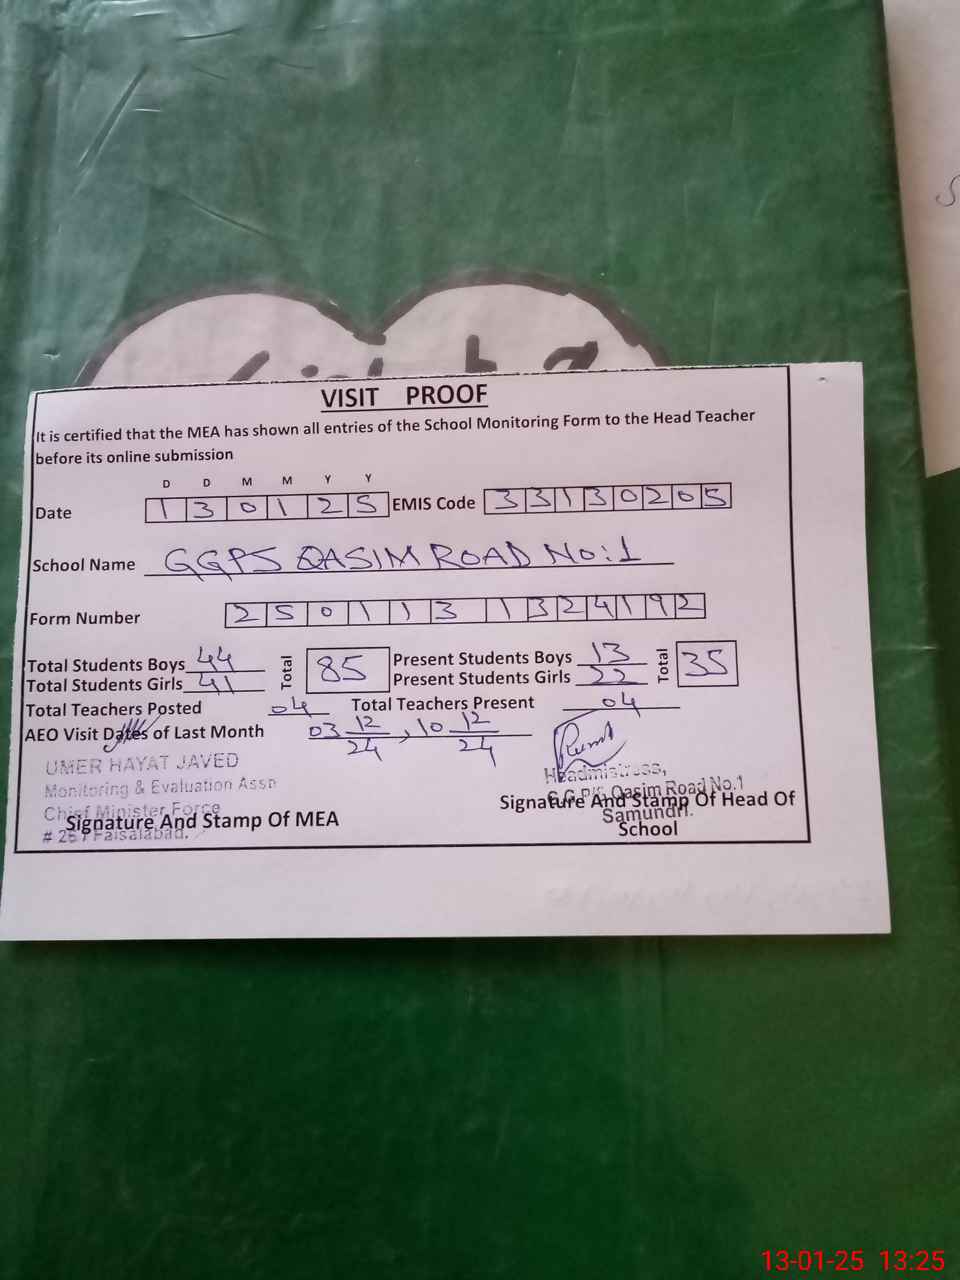 VISIT PROOF
It is certified that the MEA has shown all entries of the School Monitoring Form to the Head Teacher
before its online submission
D D M M Y Y
Date 1 3 0 1 2 5 EMIS Code 3 3 1 3 0 2 0 5
School Name GGPS QASIM ROAD No:1
Form Number 2 5 0 1 1 3 1 3 2 4 1 9 2
Total Students Boys 44 Total 85 Present Students Boys 13 Total 35
Total Students Girls 41 Present Students Girls 22
Total Teachers Posted 04 Total Teachers Present 04
AEO Visit Dates of Last Month 03 12/24, 10 12/24
UMER HAYAT JAVED
Monitoring & Evaluation Assn
Chief Minister Force
# 267 Faisalabad.
Signature And Stamp Of MEA
Headmistress,
G.G.P/S Qasim Road No.1
Samundri.
Signature And Stamp Of Head Of
School
13-01-25 13:25